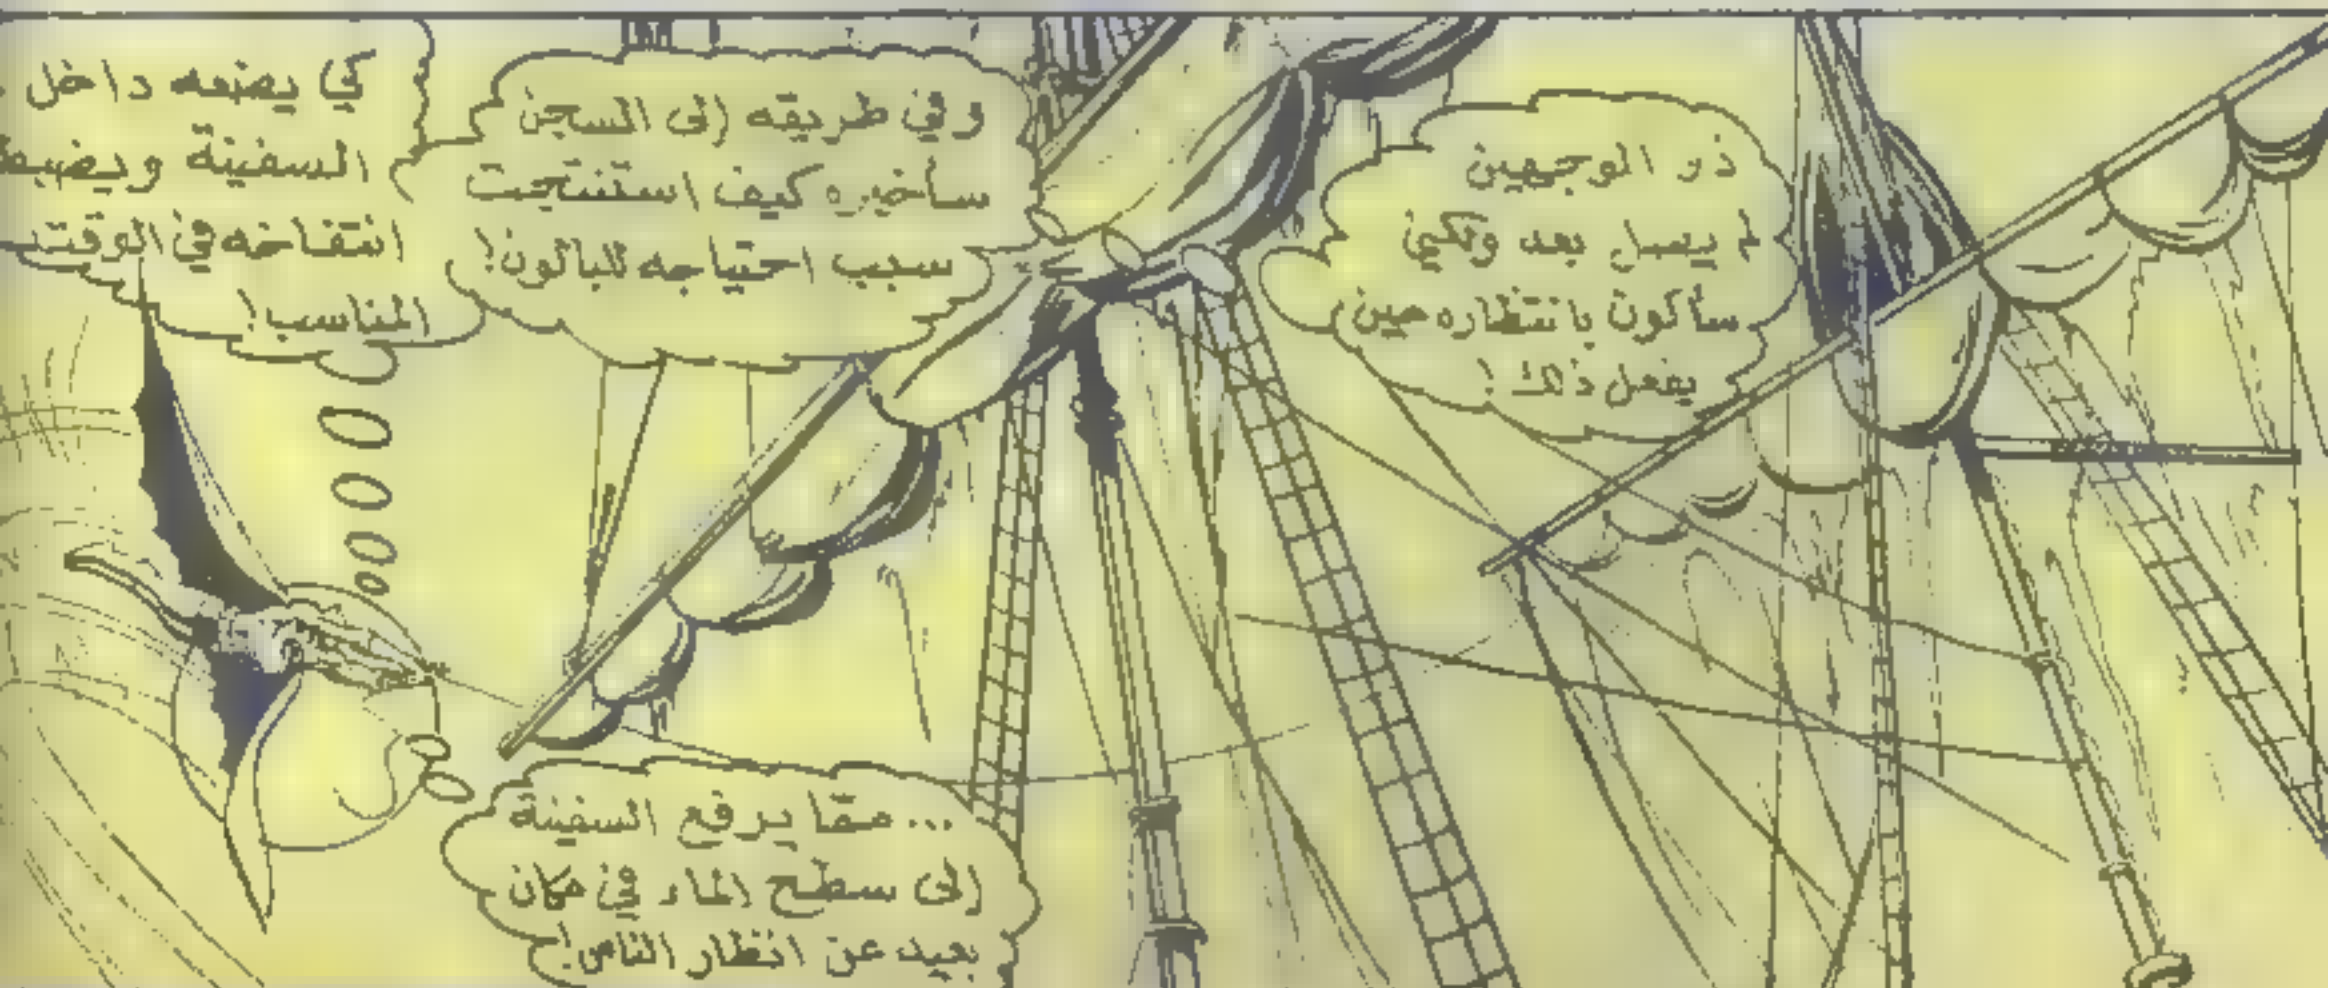 ذو الوجهين
لم يصل بعد ولكني
سأكون بانتظاره حين
يفعل ذلك!
وفي طريقه إلى السجن
سأخبره كيف استنتجت
سبب احتياجه للبالون!
كي يضعه داخل
السفينة ويضبط
انتفاخه في الوقت
المناسب!
... ممّا يرفع السفينة
إلى سطح الماء في مكان
بعيد عن انظار الناس!